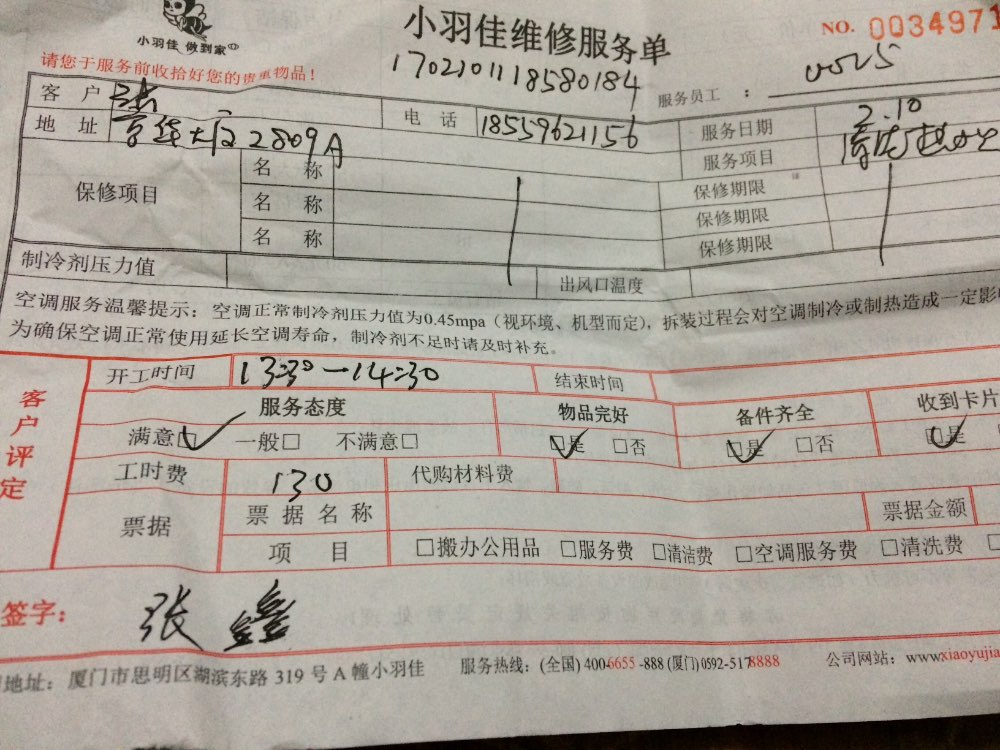 小羽佳 做到家
小羽佳维修服务单
NO. 0034971
请您于服务前收拾好您的贵重物品！
1702101118580184
服务员工：
客户 张
电话 18559621156
服务日期 2.10
地址 大厦2809A
服务项目
保修项目
名称
保修期限
名称
保修期限
名称
保修期限
制冷剂压力值
出风口温度
空调服务温馨提示：空调正常制冷剂压力值为0.45mpa（视环境、机型而定），拆装过程会对空调制冷或制热造成一定影
为确保空调正常使用延长空调寿命，制冷剂不足时请及时补充。
客户评定
开工时间 13:30一14:30
结束时间
服务态度
物品完好
备件齐全
收到卡片
满意□ 一般□ 不满意□
□是 □否
□是 □否
□是
工时费 130
代购材料费
票据
票据名称
票据金额
项目
□搬办公用品 □服务费 □清洁费 □空调服务费 □清洗费
签字： 张鑫
地址：厦门市思明区湖滨东路319号A幢小羽佳 服务热线：(全国) 400-6655-888 (厦门) 0592-5178888 公司网站：www.xiaoyujia